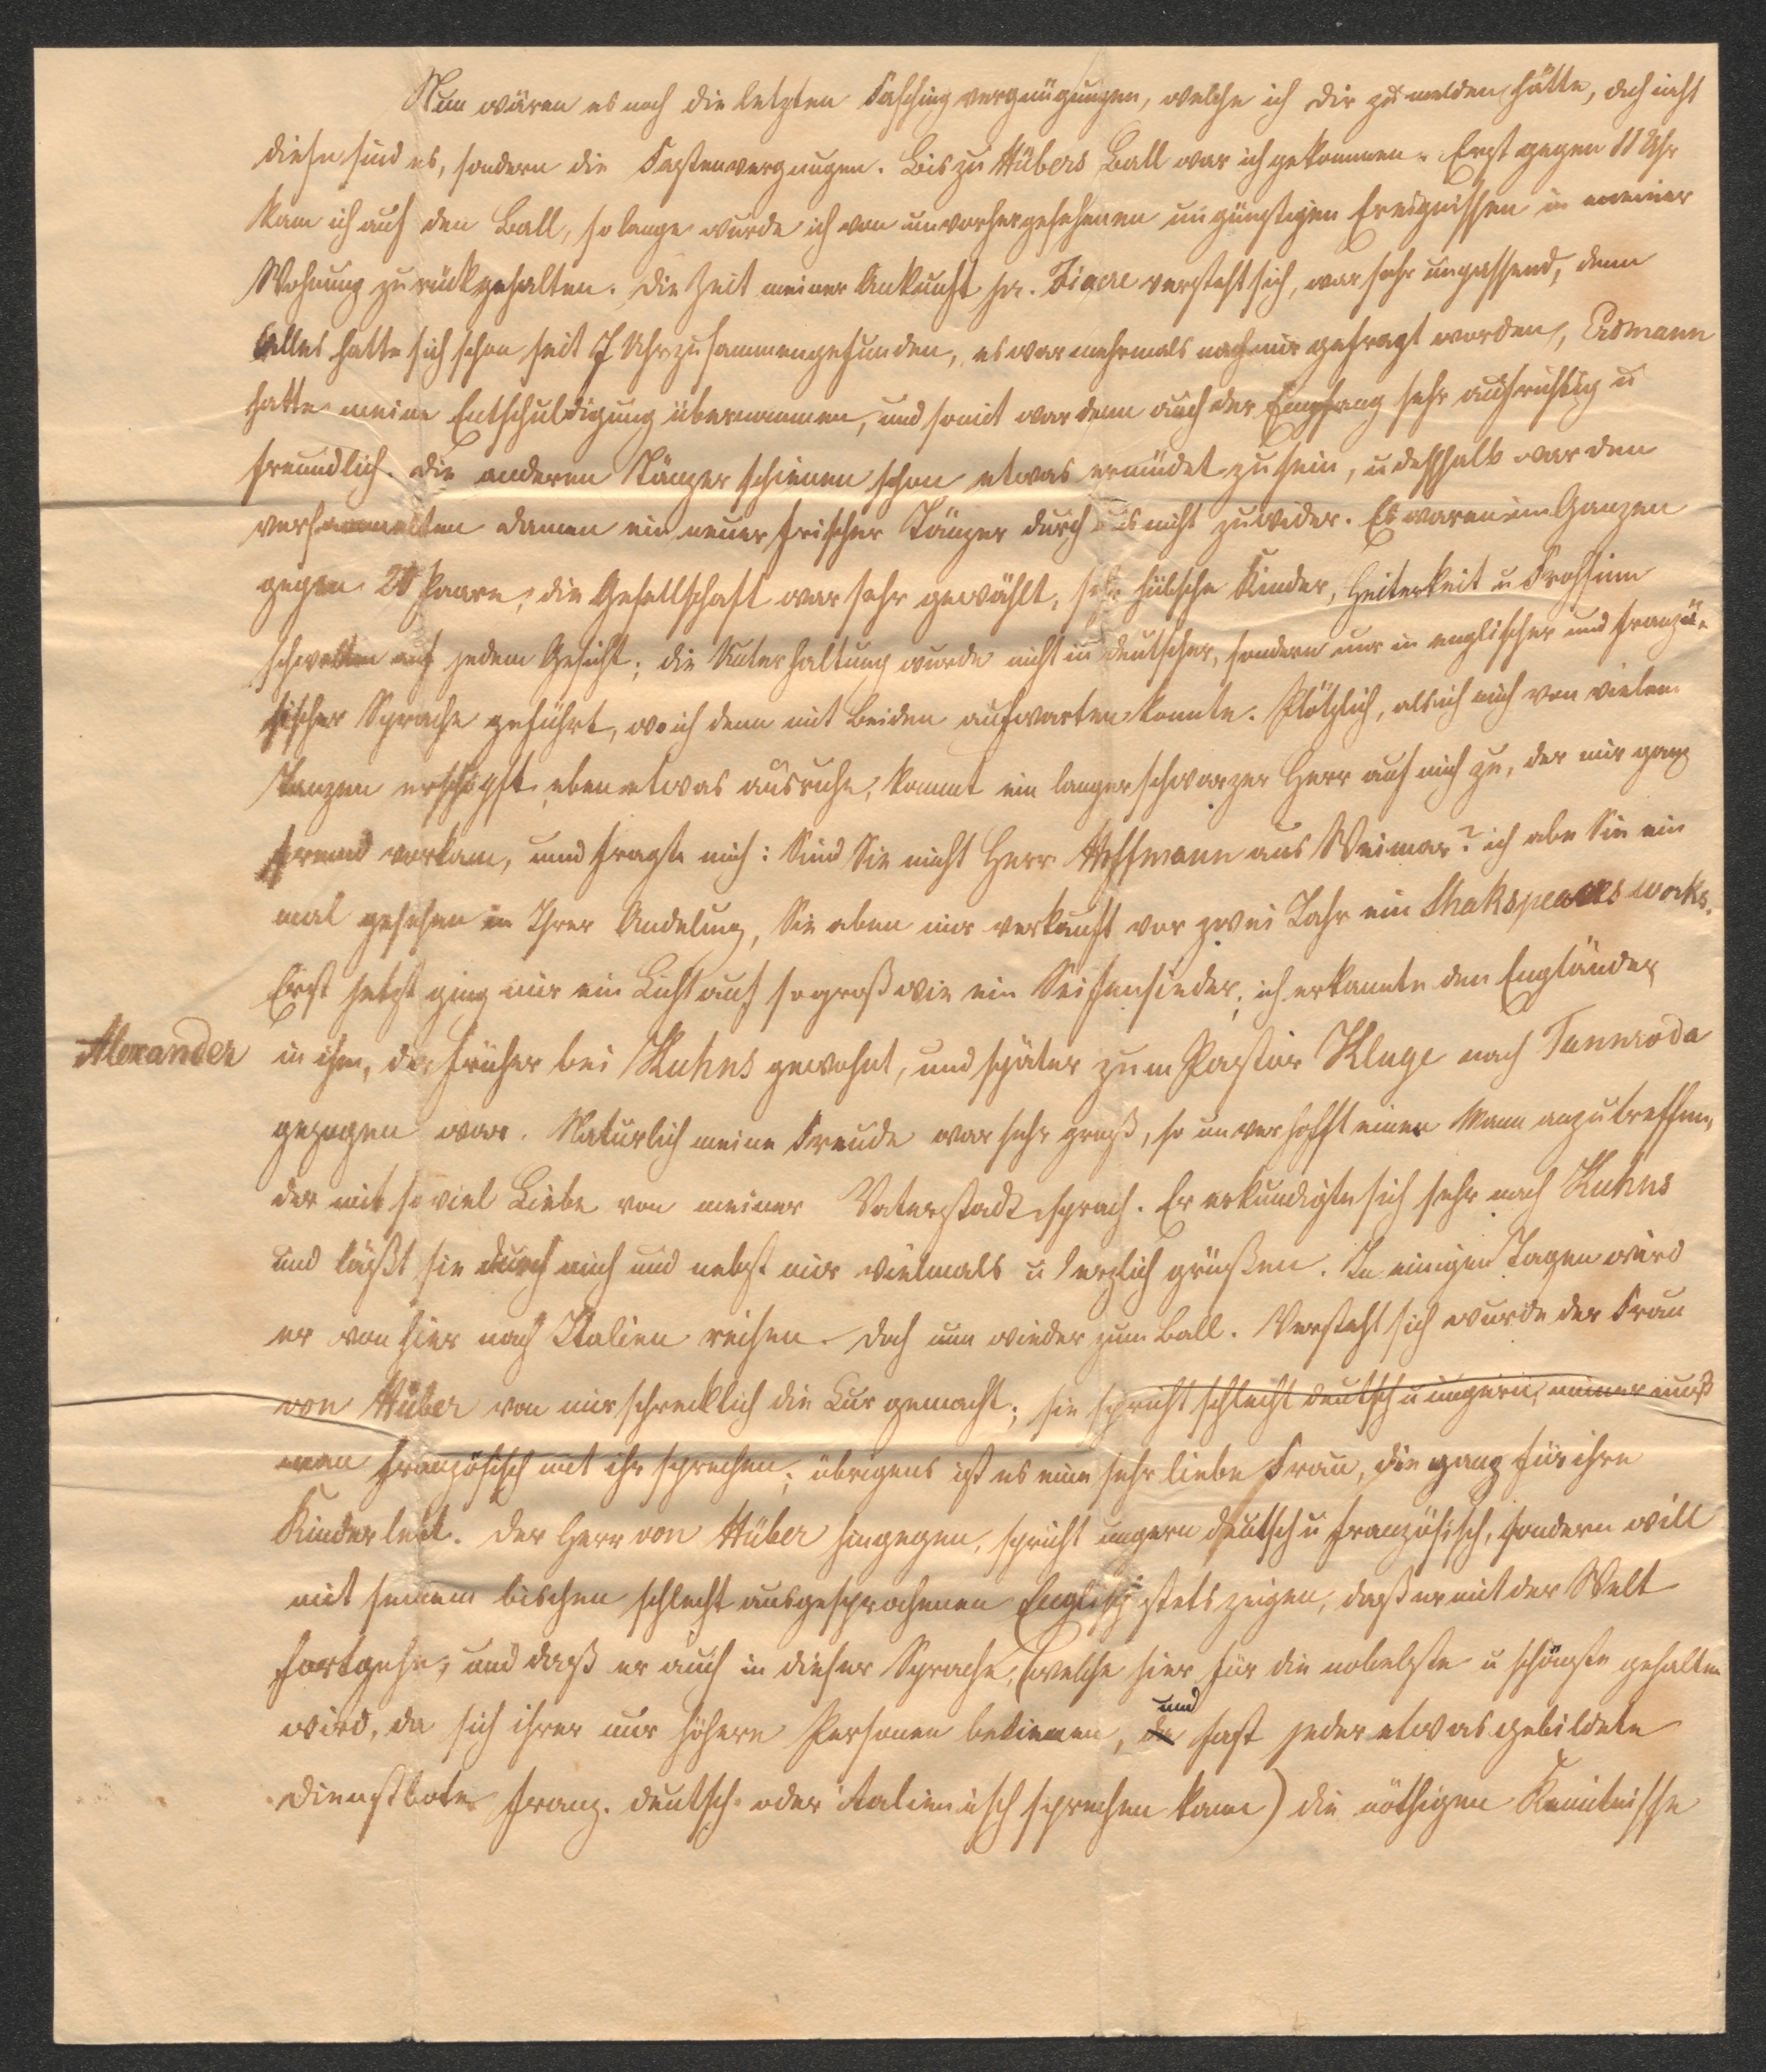 Nun wären es noch die letzten Faschingvergnügungen, welche ich Dir zu melden hätte, doch nicht
diese sind es, sondern die Fastenvergnugen. Bis zu Hübers Ball war ich gekommen. Erst gegen 11 Uhr
kam ich auf den Ball, so lange wurde ich von unvorhergesehenen ungünstigen Ereignissen in meiner
Wohnung zurückgehalten. Die Zeit meiner Ankunft versteht sich, war sehr unpassend, denn
Alles hatte sich schon seit 7 Uhr zusammengefunden, es war mehrmals nach mir gefragt worden, Eismann
hatte meine Entschuldigung übernommen, und somit war denn auch der Empfang sehr aufrichtig u
freundlich. Die anderen Tänzer schienen schon etwas ermüdet zu sein, u deßhalb war den
versammelten Damen ein neuer frischer Tänzer durchaus nicht zuwider. Es waren im Ganzen
gegen 20 Paare, die Gesellschaft war sehr gewählt, sehr hübsche Kinder, Heiterkeit u Frohsinn
auf jedem Gesicht; die Unterhaltung wurde nicht in deutscher, sondern nur in englischer und franzö-
sischer Sprache geführt, wo ich denn mit Beiden aufwarten konnte. Plötzlich, als ich mich von vielem
Tanzen erschöpft eben etwas ausruhe, kommt ein langer schwarzer Herr auf mich zu, der mir ganz
fremd vorkam, und fragte mich: Sind Sie nicht Herr Hoffmann aus Weimar? ich abe Sie ein
mal gesehen in Ihrer Andelung, Sie aben mir verkauft vor zwei Jahr ein Shakspeares works.
Erst jetzt ging mir ein Licht auf so groß wie ein Seifensieder, ich erkannte den Engländer
Alexander in ihm, der früher bei Kuhns gewohnt, und später zum Pastor Kluge nach Tannroda
gezogen war. Natürlich meine Freude war sehr groß, so unverhofft einen Mann anzutreffen,
der mit so viel Liebe von meiner Vaterstadt sprach. Er erkundigte sich sehr nach Kuhns
und läßt sie durch mich und nebst mir vielmals u herzlich grüßen. In einigen Tagen wird
er von hier nach Italien reisen. Doch nun wieder zum Ball. Versteht sich wurde der Frau
von Hüber von mir schrecklich die Cur gemacht; sie spricht schlecht deutsch u ungern, immer muß
man französisch mit ihr sprechen; übrigens ist es eine sehr liebe Frau, die ganz für ihre
Kinder lebt. Der Herr von Hüber hingegen, spricht ungern deutsch u französisch, sondern will
mit seinem bischen schlecht ausgesprochenen Englisch stets zeigen, daß er mit der Welt
fortgehe, und daß er auch in dieser Sprache, (welche hier für die nobelste u schönste gehalten
wird, da sich ihrer nur höhere Personen bedienen, und fast jeder etwas gebildete
Dienstbote franz. deutsch oder italienisch sprechen kann) die nöthigen Kenntnisse